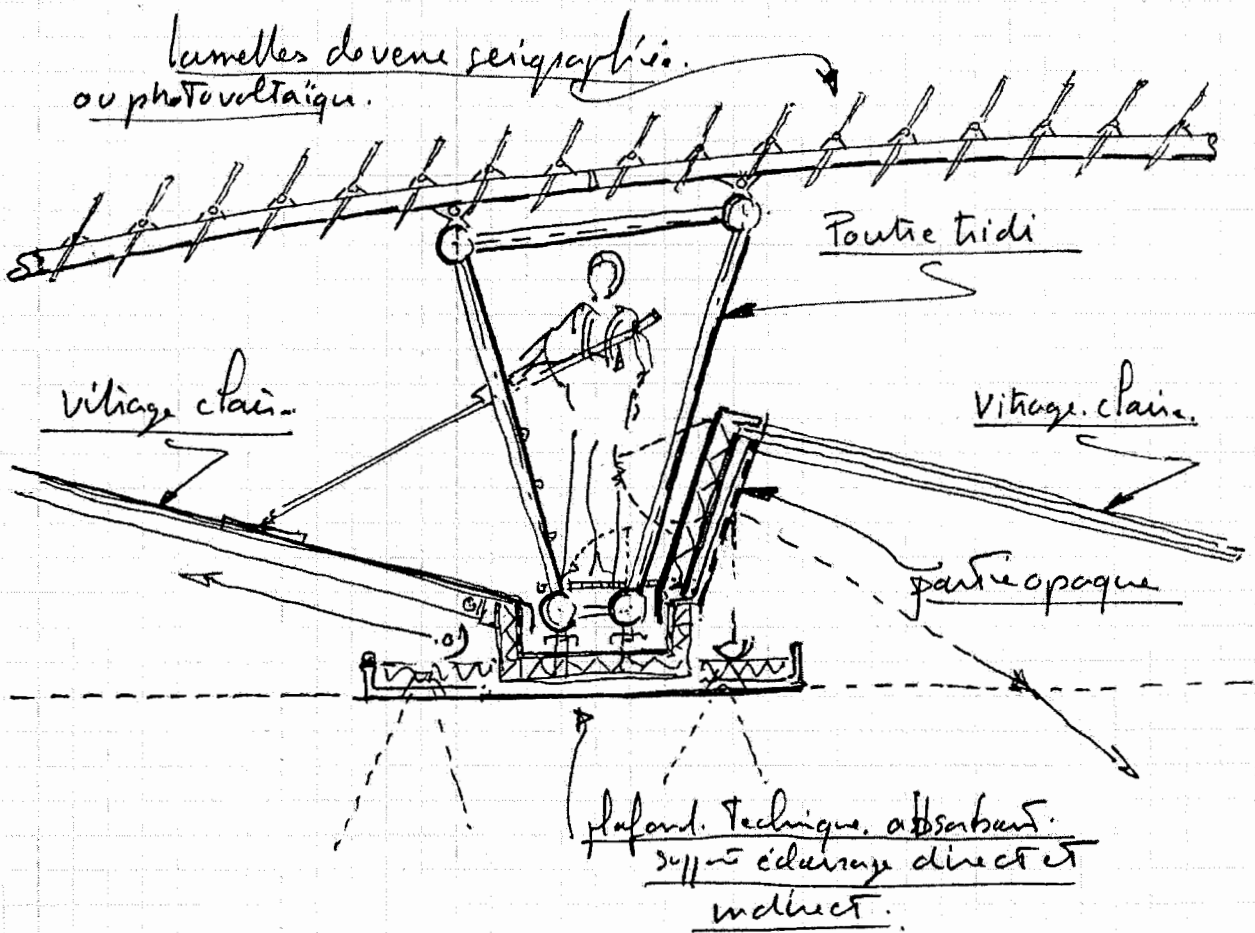 lamelles de verre serigraphiée.
ou photovoltaïque.
Poutre tridi
vitrage clair.
Vitrage clair.
partie opaque
plafond technique absorbant.
support éclairage direct et
indirect.